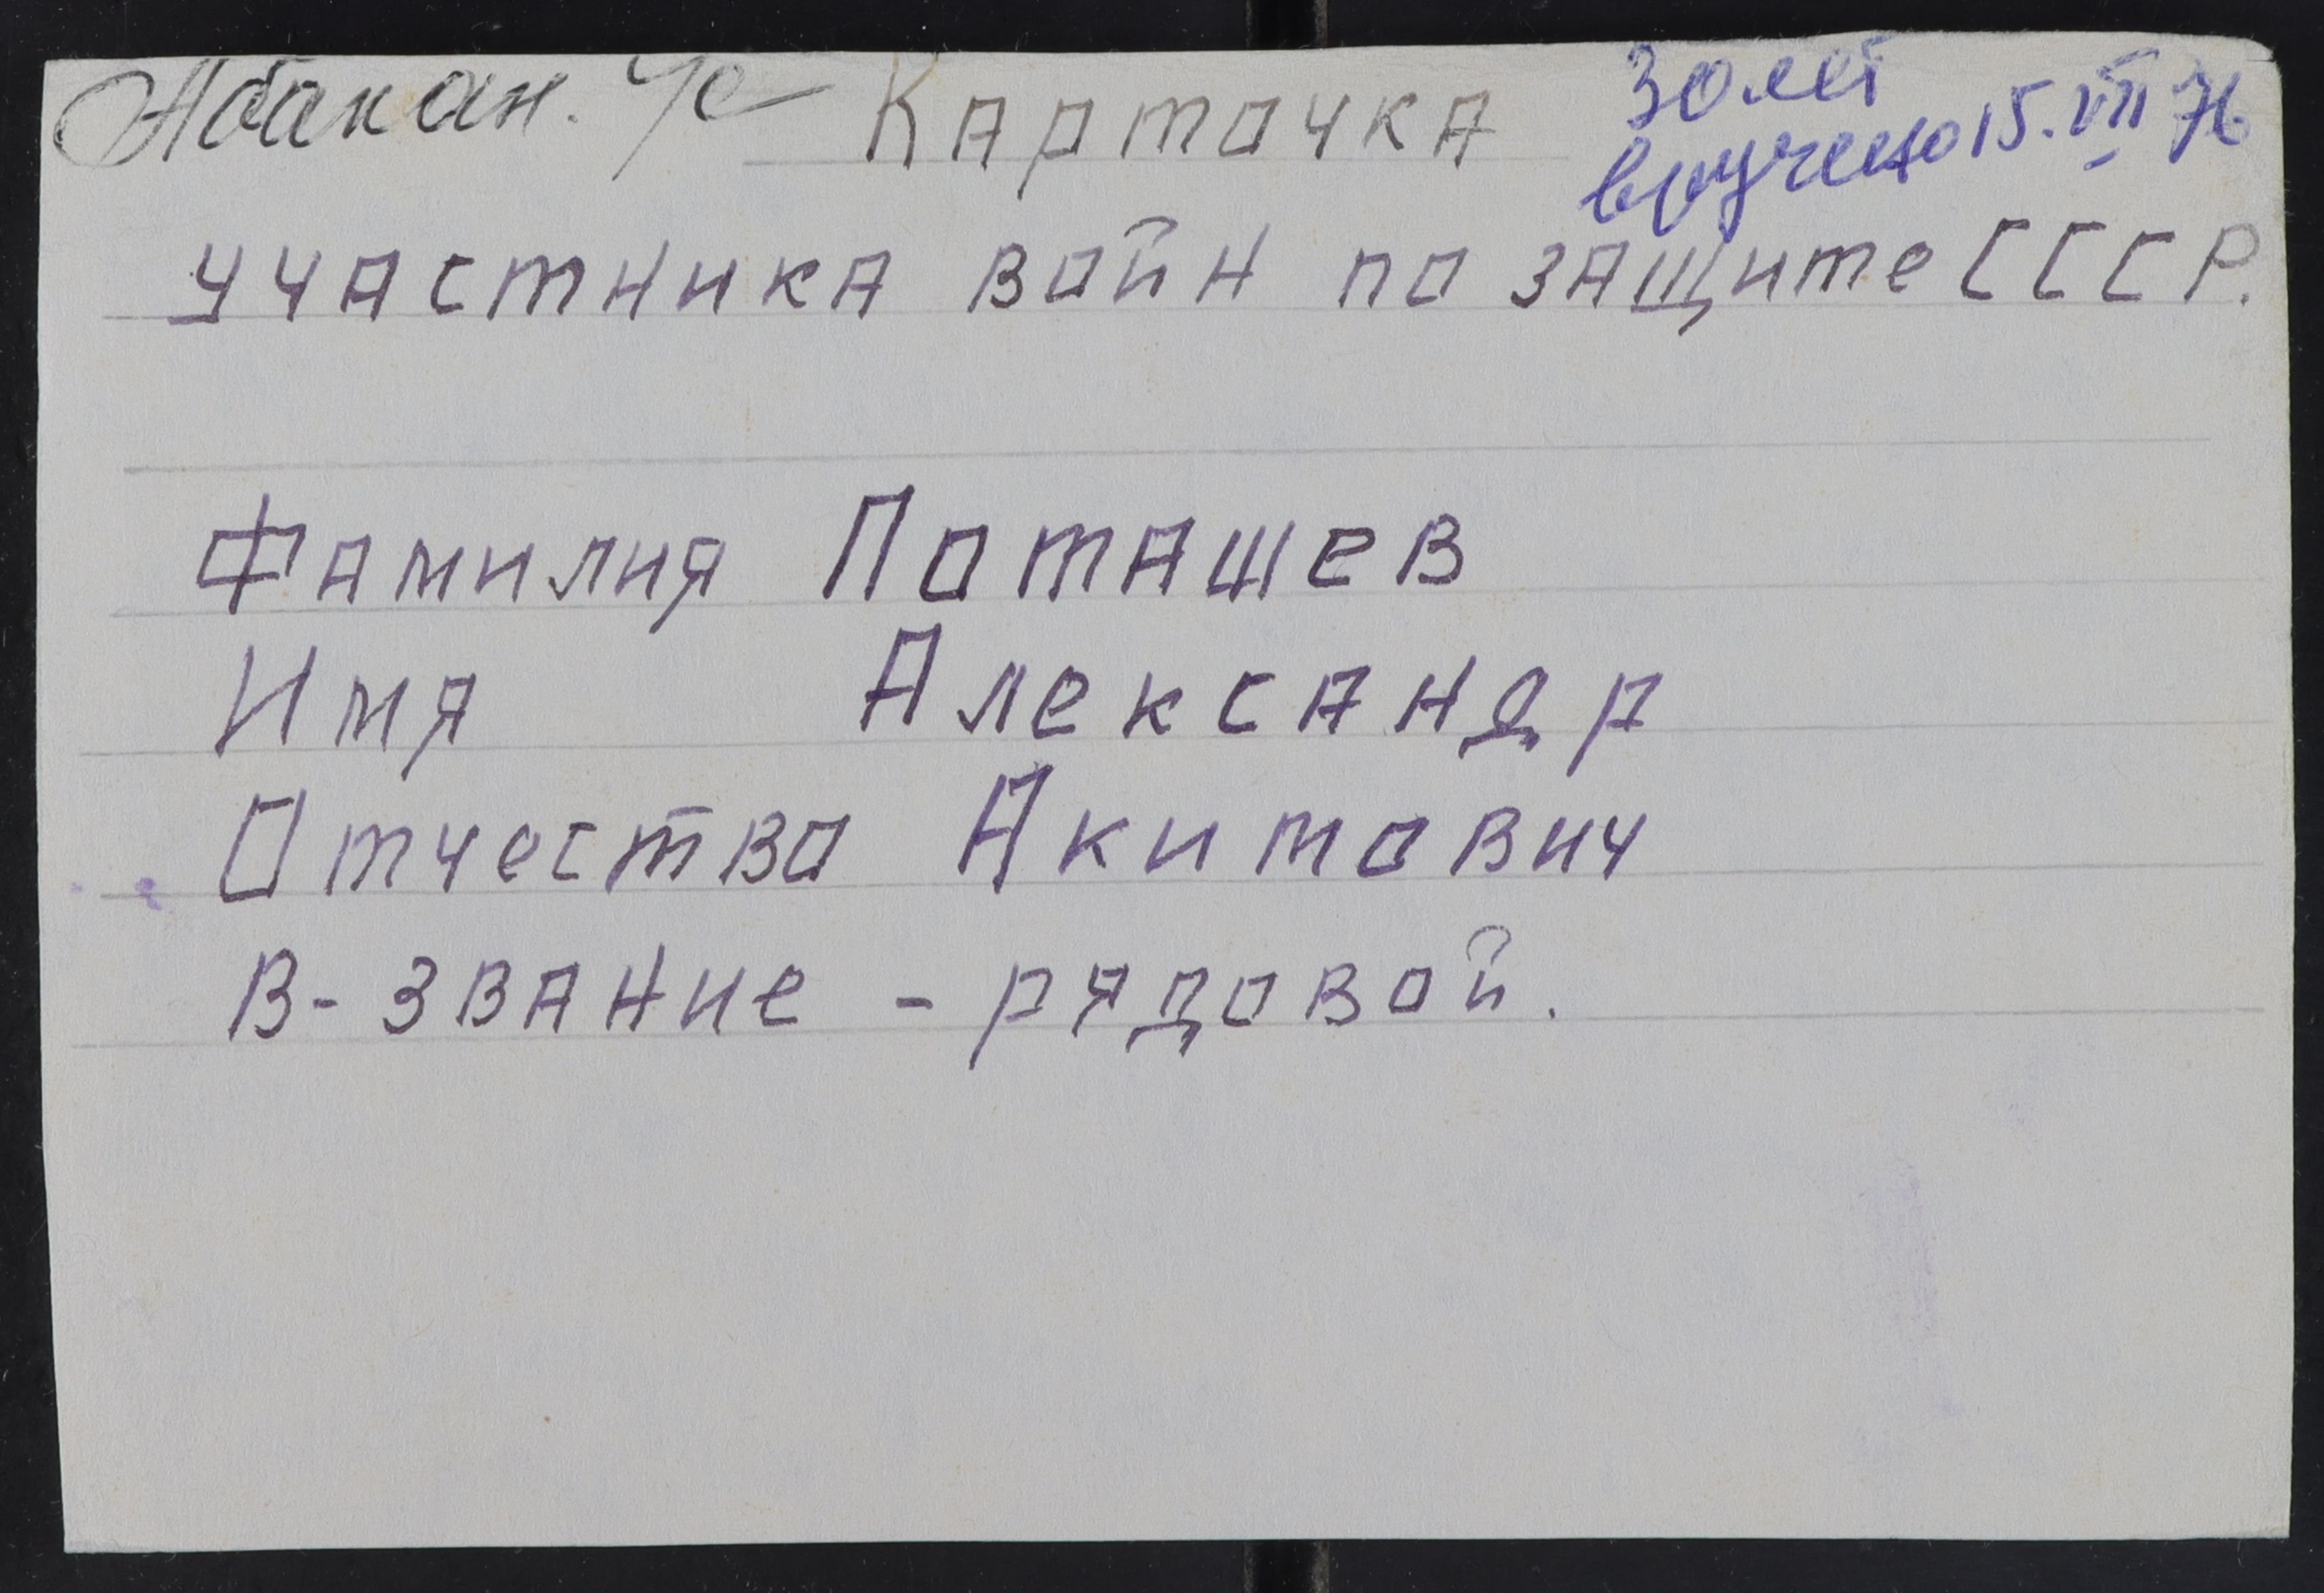 Абакан. Ус
30 лет
вручено 15. VIII 76
Карточка
участника войн по защите СССР.
Фамилия Поташев
Имя Александр
Отчество Акимович
В-звание - рядовой.